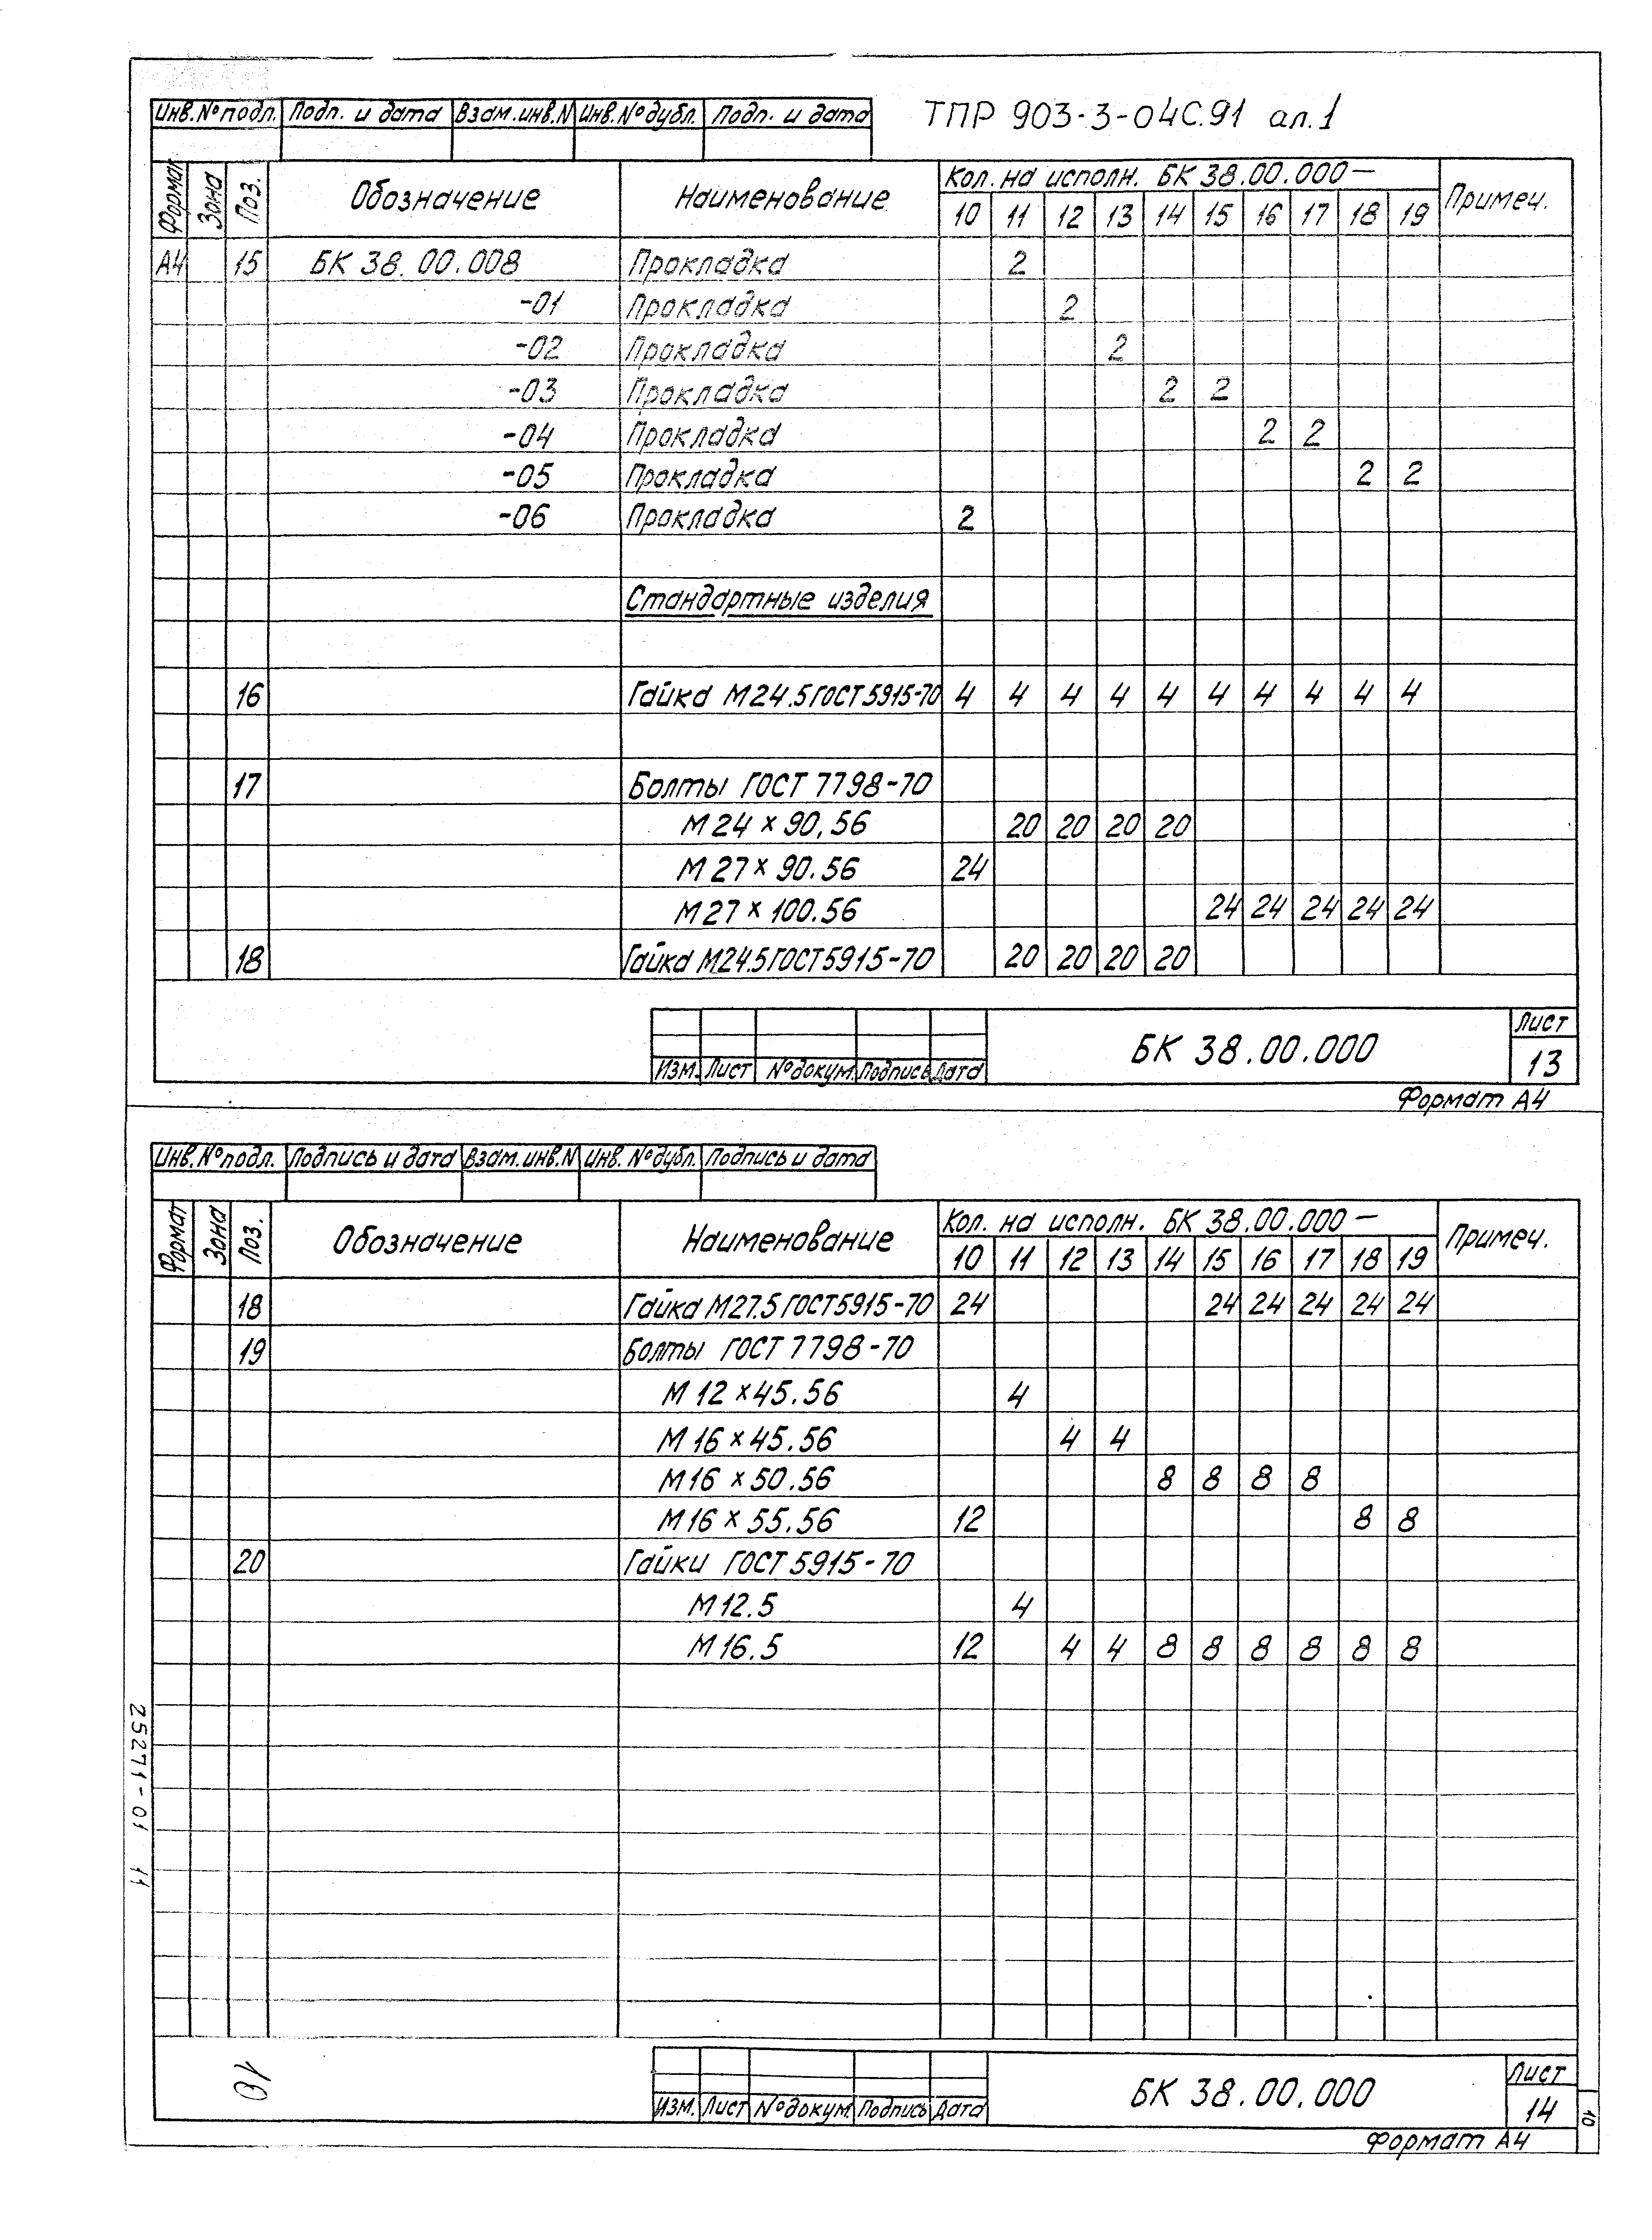 ТПР 903-3-04С.91 ал.1
Инв.№подл. Подп. и дата Взам.инв.N Инв.№дубл. Подп. и дата
Формат Зона Поз. Обозначение Наименование Кол. на исполн. БК 38.00.000— Примеч.
10 11 12 13 14 15 16 17 18 19
А4 15 БК 38.00.008 Прокладка 2
-01 Прокладка 2
-02 Прокладка 2
-03 Прокладка 2 2
-04 Прокладка 2 2
-05 Прокладка 2 2
-06 Прокладка 2
Стандартные изделия
16 Гайка М24.5ГОСТ5915-70 4 4 4 4 4 4 4 4 4 4
17 Болты ГОСТ 7798-70
М24×90,56 20 20 20 20
М27×90.56 24
М27×100.56 24 24 24 24 24
18 Гайка М24.5ГОСТ5915-70 20 20 20 20
Изм. Лист №докум. Подпись Дата БК 38.00.000 Лист
13
Формат А4
Инв.№подл. Подпись и дата Взам.инв.N Инв. №дубл. Подпись и дата
Формат Зона Поз. Обозначение Наименование Кол. на исполн. БК 38.00.000— Примеч.
10 11 12 13 14 15 16 17 18 19
18 Гайка М27.5ГОСТ5915-70 24 24 24 24 24 24
19 Болты ГОСТ 7798-70
М12×45.56 4
М16×45.56 4 4
М16×50.56 8 8 8 8
М16×55.56 12 8 8
20 Гайки ГОСТ 5915-70
М12.5 4
М16.5 12 4 4 8 8 8 8 8 8
25271-01 11
10
Изм. Лист №докум. Подпись Дата БК 38.00.000 Лист
14
10
Формат А4